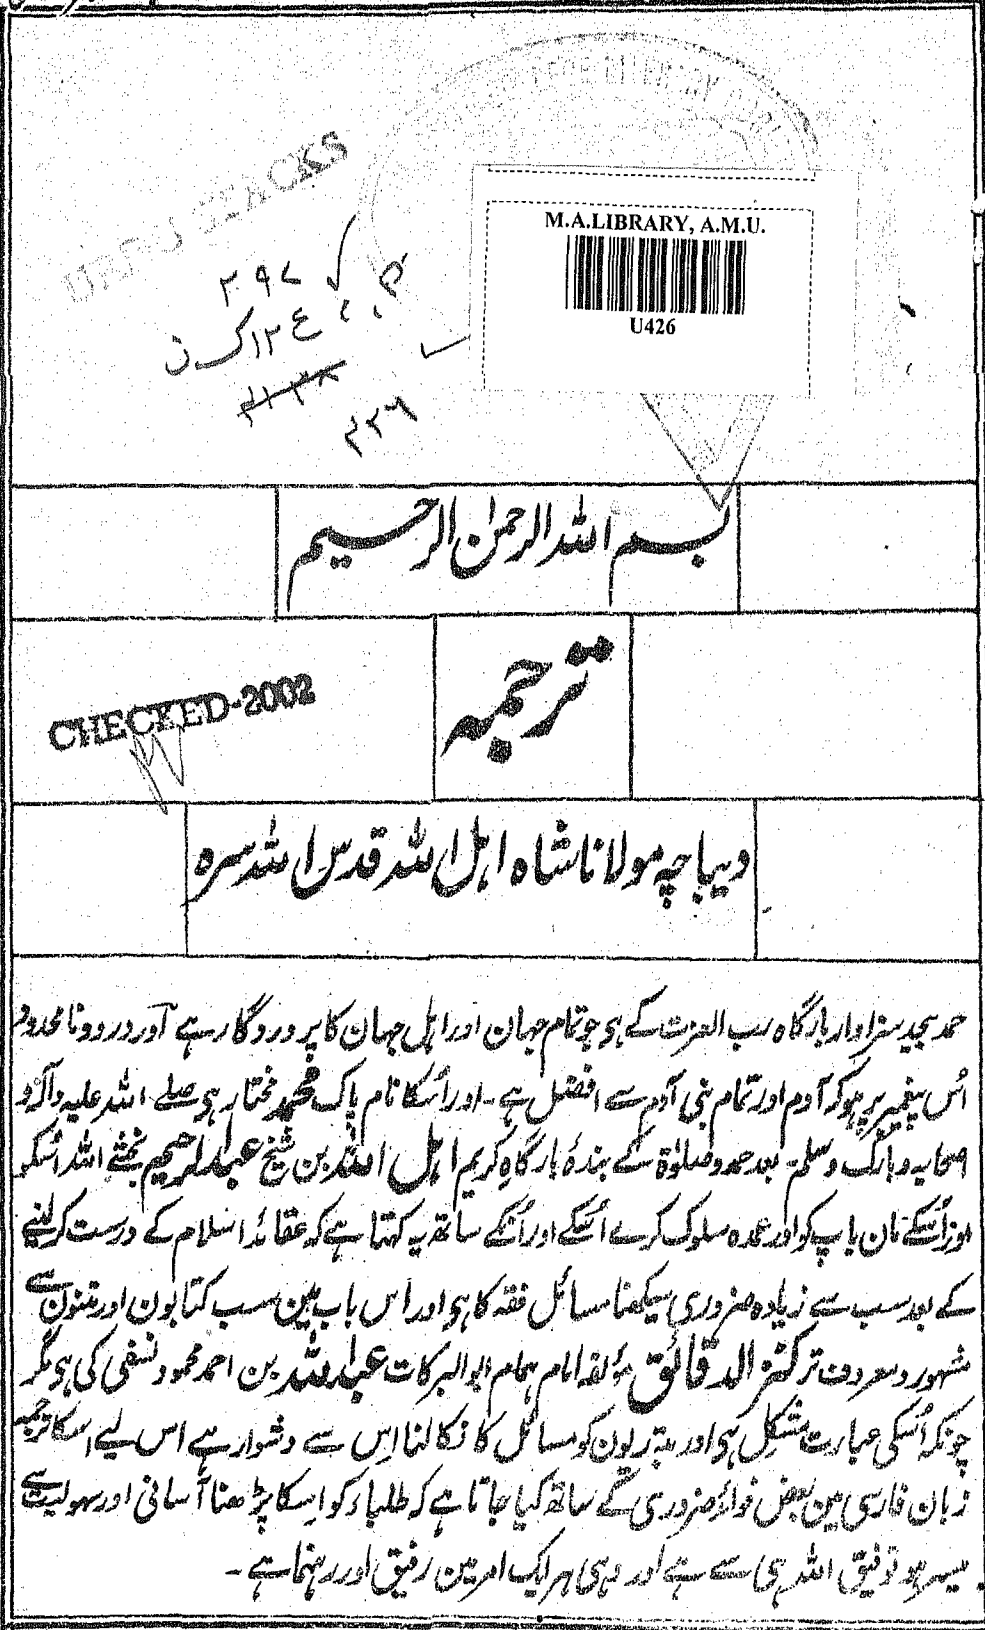 URDU STACKS
M.A.LIBRARY, A.M.U.
U426
۲۹۷
۱۲ع ک ن
۴۲۶
بسم اللہ الرحمن الرحیم
ترجمہ
CHECKED-2002
دیباچہ مولانا شاہ اہل اللہ قدس اللہ سرہ
حمد بیحد سزاوار بارگاہ رب العزت کے ہی جو تمام جہان اور اہل جہان کا پروردگار ہے اور درود نا محدود
اُس پیغمبر پر ہو کہ آدم اور تمام بنی آدم سے افضل ہے۔ اور اُسکا نام پاک محمد مختار ہی صلے اللہ علیہ وآلہ و
اصحابہ وبارک وسلم۔ بعد حمد وصلوٰۃ کے بندۂ بارگاہِ کریم اہل اللہ بن شیخ عبدالرحیم بخشے اللہ اُسکو
اور اُسکے مان باپ کو اور عمدہ سلوک کرے اُسکے اور اُنکے ساتھ یہ کہتا ہے کہ عقائد اسلام کے درست کر لینے
کے بعد سب سے زیادہ ضروری سیکھنا مسائل فقہ کا ہی اور اس باب مین سب کتابون اور متنون سے
مشہور و معروف تر کنز الدقائق مؤلفہ امام ہمام ابو البرکات عبداللہ بن احمد محمود نسفی کی ہی مگر
چونکہ اُسکی عبارت مشکل ہی اور مبتدیون کو مسائل کا نکالنا اِس سے دشوار ہے اس لیے اسکا ترجمہ
زبان فارسی مین بعض فوائد ضروری کے ساتھ کیا جاتا ہے کہ طلباء کو اِسکا پڑھنا آسانی اور سہولیت سے
میسر ہو توفیق اللہ ہی سے ہے اور وہی ہر ایک امر مین رفیق اور رہنما ہے۔